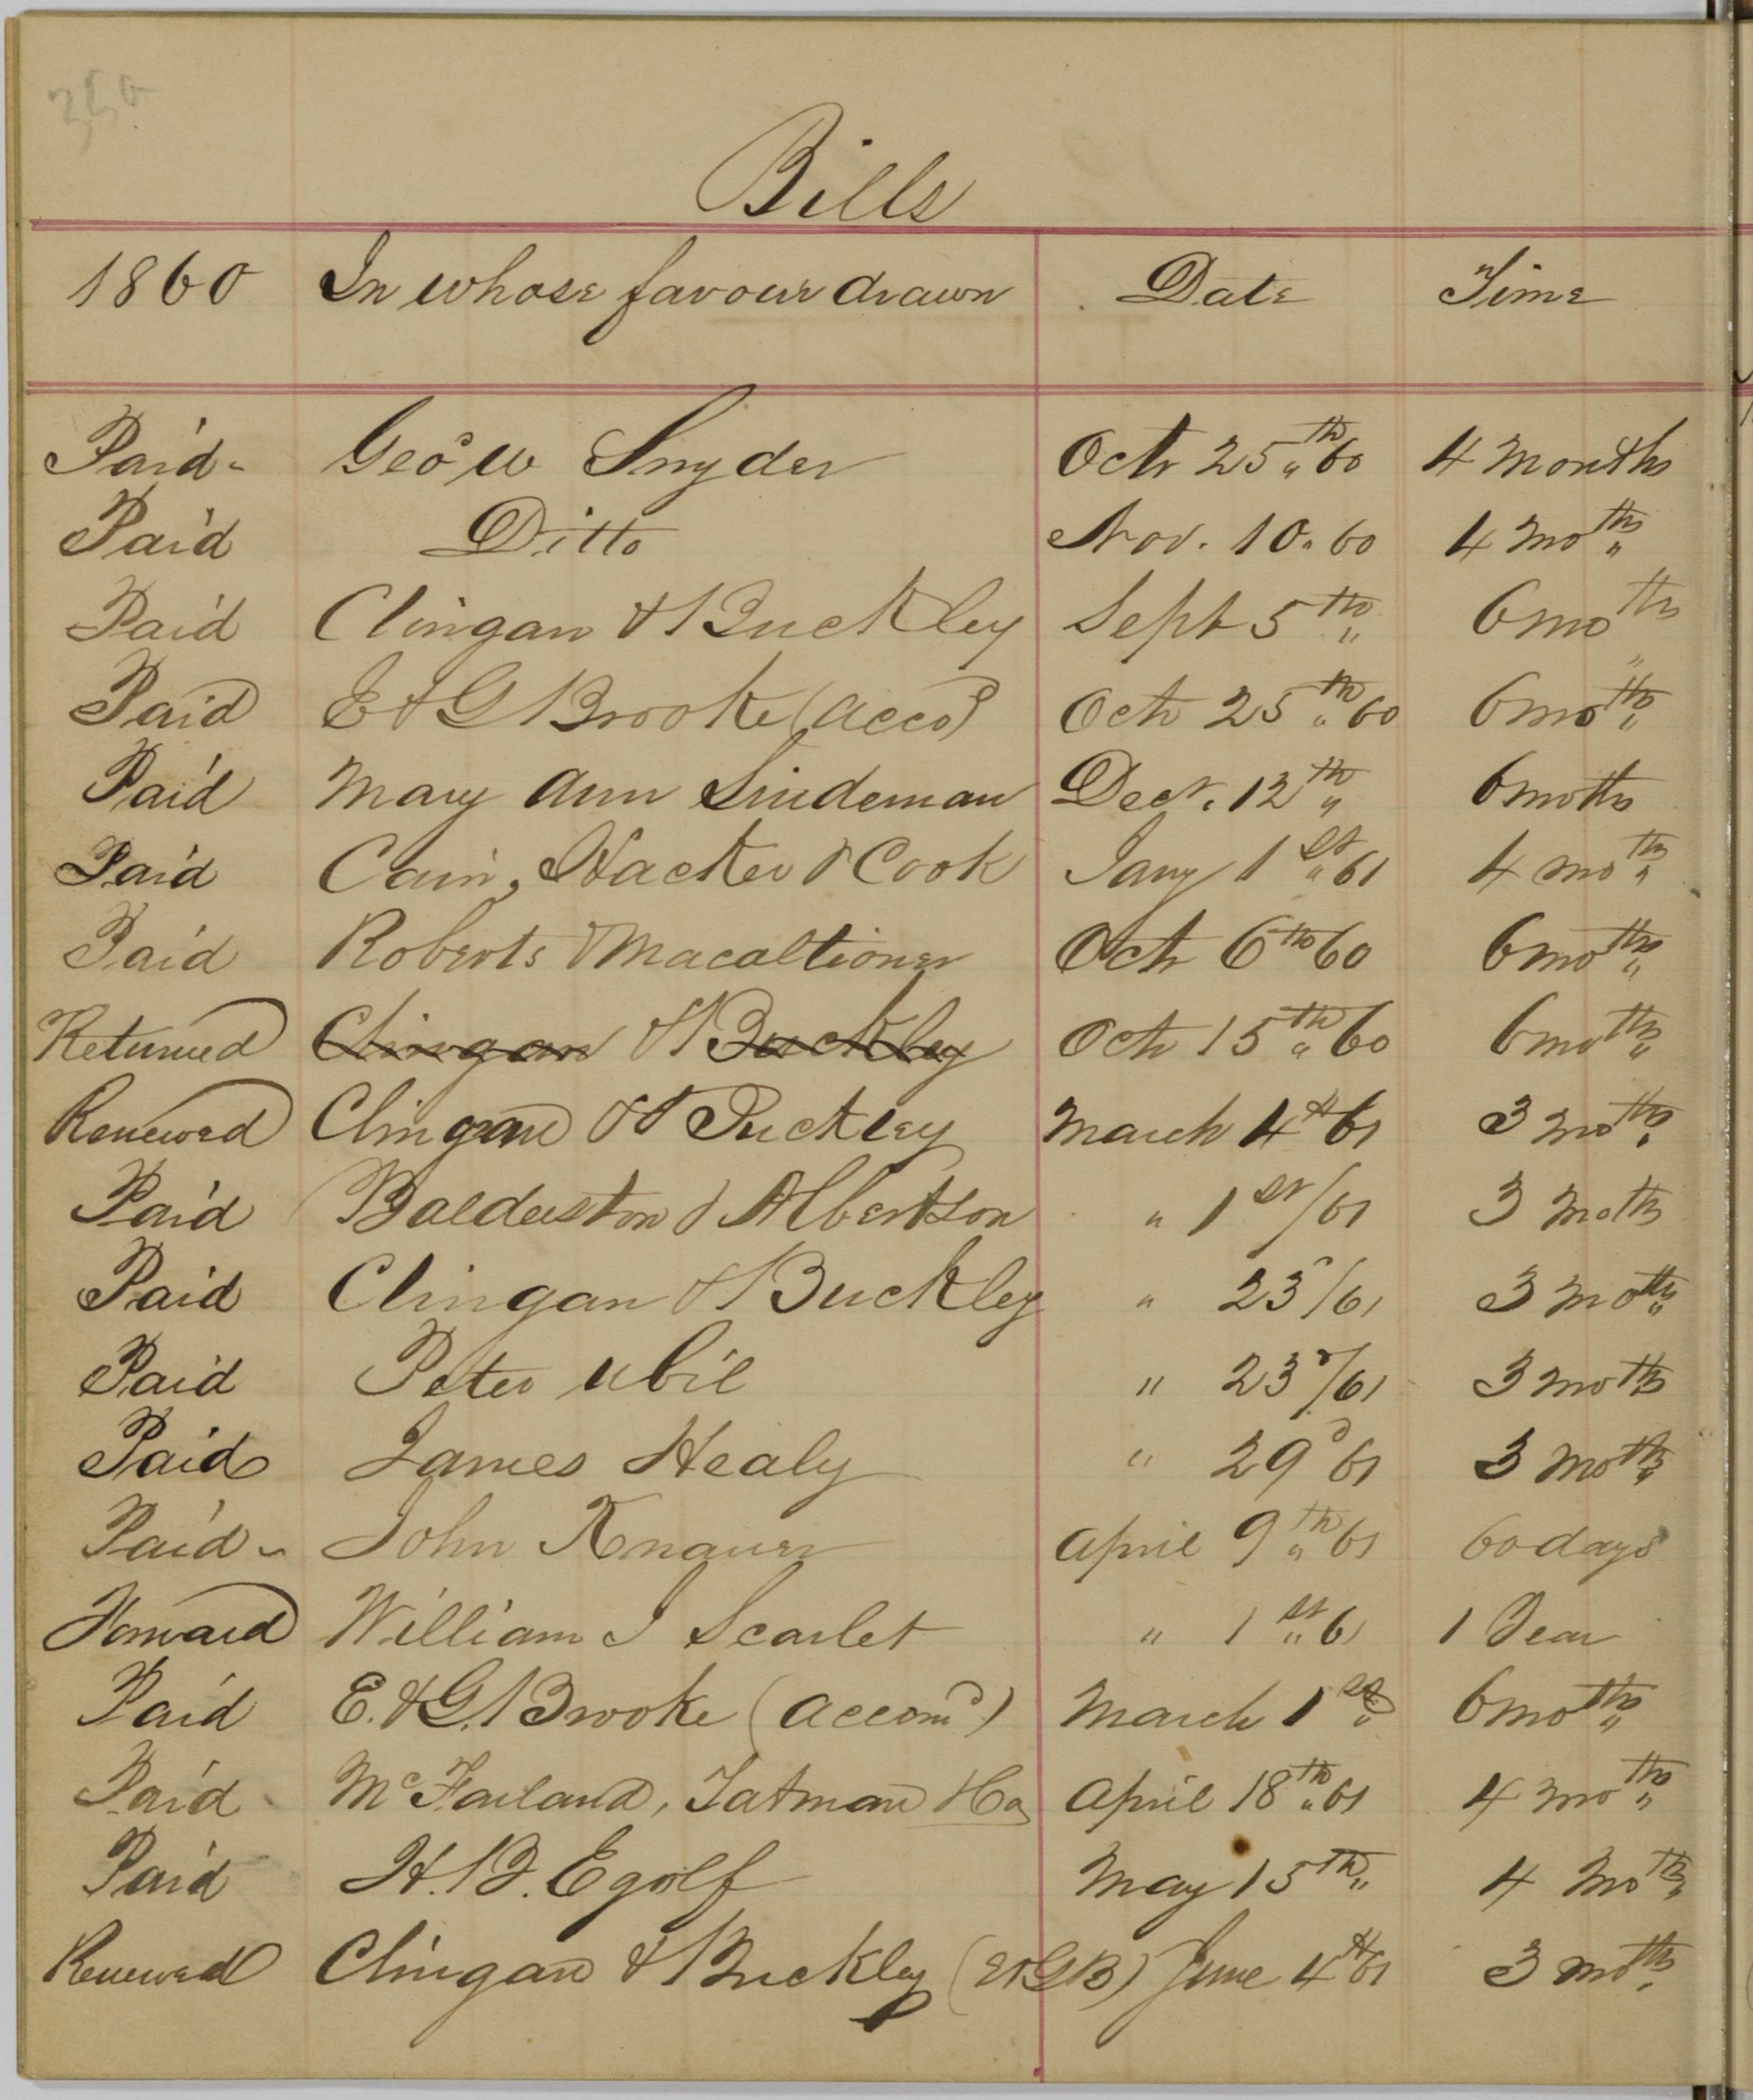 Bills
1860 In whose favour drawn Date Time
Paid Geo W Snyder Oct 25th "60 4 Months
Paid Ditto Nov. 10 "60 4 moths "
Paid Clingan & Buckley Sept 5th " 6 moths "
Paid E & G Brooke (acco) Oct 25th "60 6 moths "
Paid Mary Ann Lindeman Decr. 12th " 6 moths
Paid Cain, Hacker & Cook Jany 1st "61 4 moths "
Paid Roberts & Macaltioner Oct 6th 60 6 moths "
Returned Clingan & Buckley Oct 15th "60 6 moths "
Renewed Clingan & Buckley March 4th 61 3 moths "
Paid Balderston & Albertson " 1st/61 3 moths
Paid Clingan & Buckley " 23/61 3 moths "
Paid Peter Ubil " 23/61 3 moths
Paid James Healy " 29 61 3 moths "
Paid John Knauer April 9th "61 60 days
Forward William J Scarlet " 1st "61 1 Year
Paid E. & G. Brooke (Accomd) March 1st " 6 moths "
Paid McFarland, Tatman & Co April 18th "61 4 moths "
Paid H. B. Egolf May 15th " 4 moths "
Renewed Clingan & Buckley (E&GB) June 4th 61 3 moths